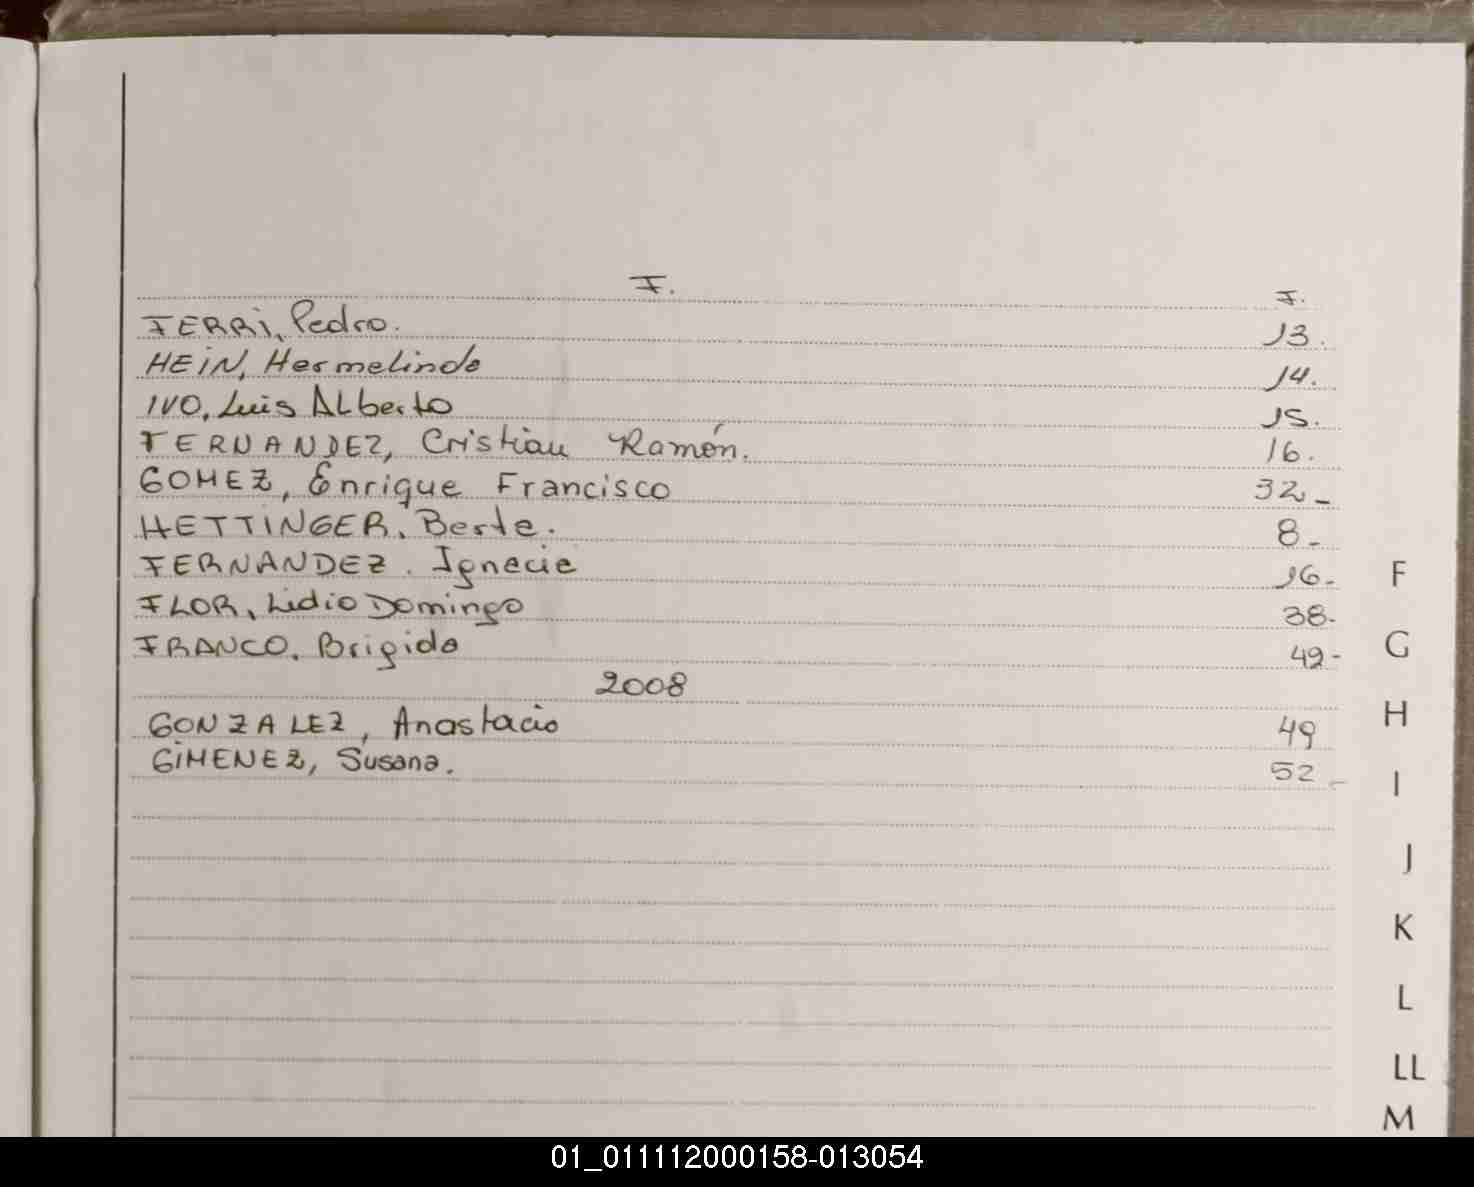 F.
F.
FERRi, Pedro. 13.
HEiN, Hermelindo 14.
IVO, Luis ALberto 15.
FERNANDEZ, Cristian Ramón. 16.
GOMEZ, Enrique Francisco 32-
HETTiNGER, Berta. 8-
FERNANDEZ. Ignacia 16-
FLOR, Lidio Domingo 38-
FRANCO. Brigida 42-
2008
GONZALEZ, Anastacio 49
GiMENEZ, Susana. 52-
F
G
H
I
J
K
L
LL
M
01_011112000158-013054